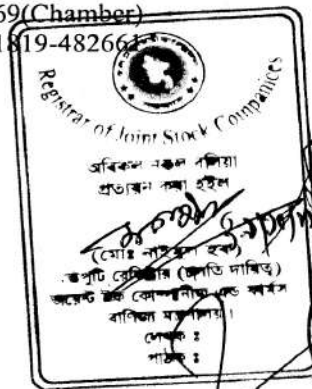 69(Chamber)
1819-482661
Registrar of Joint Stock Companies
অবিকল নকল বলিয়া
প্রত্যয়ন করা হইল
(মোঃ নাইমুল হক)
ডেপুটি রেজিস্ট্রার (চলতি দায়িত্ব)
জয়েন্ট স্টক কোম্পানীজ এন্ড ফার্মস
বাণিজ্য মন্ত্রণালয়।
লেখক :
পাঠক :